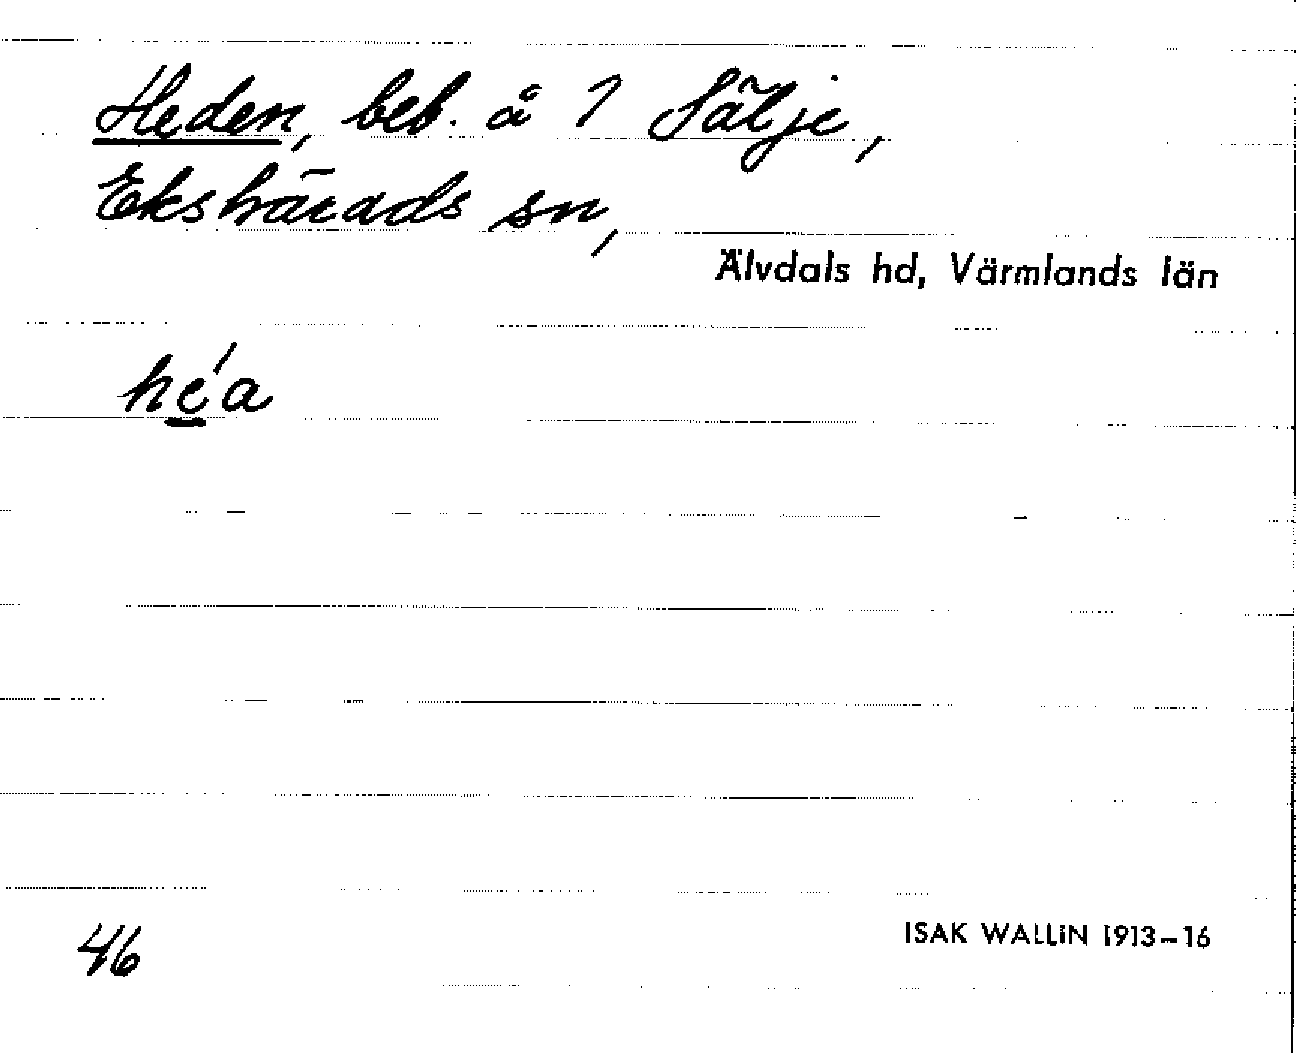 Heden, beb. å 1 Sälje,
Ekshärads sn,
Älvdals hd, Värmlands län
he̲´a
46
ISAK WALLIN 1913–16